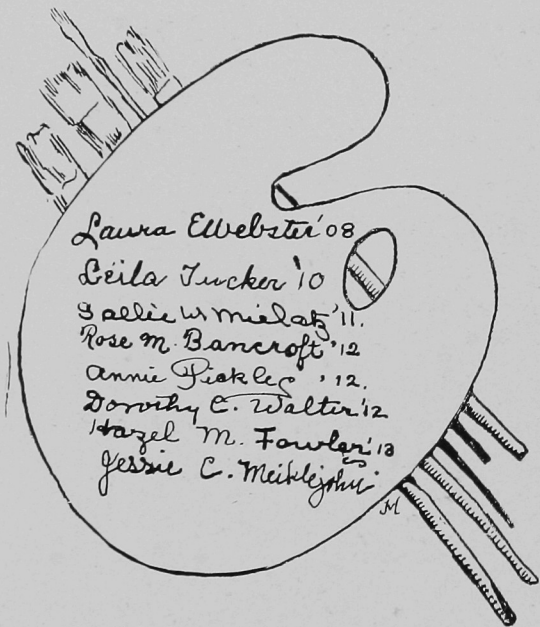 Laura E Webster '08
Leila Tucker '10
Sallie W Mielatz '11.
Rose M. Bancroft '12
Annie Pickles '12.
Dorothy E. Walter '12
Hazel M. Fowler '13
Jessie C. Meiklejohn
JM